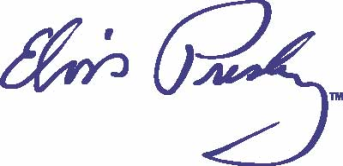 Elvis Presley™